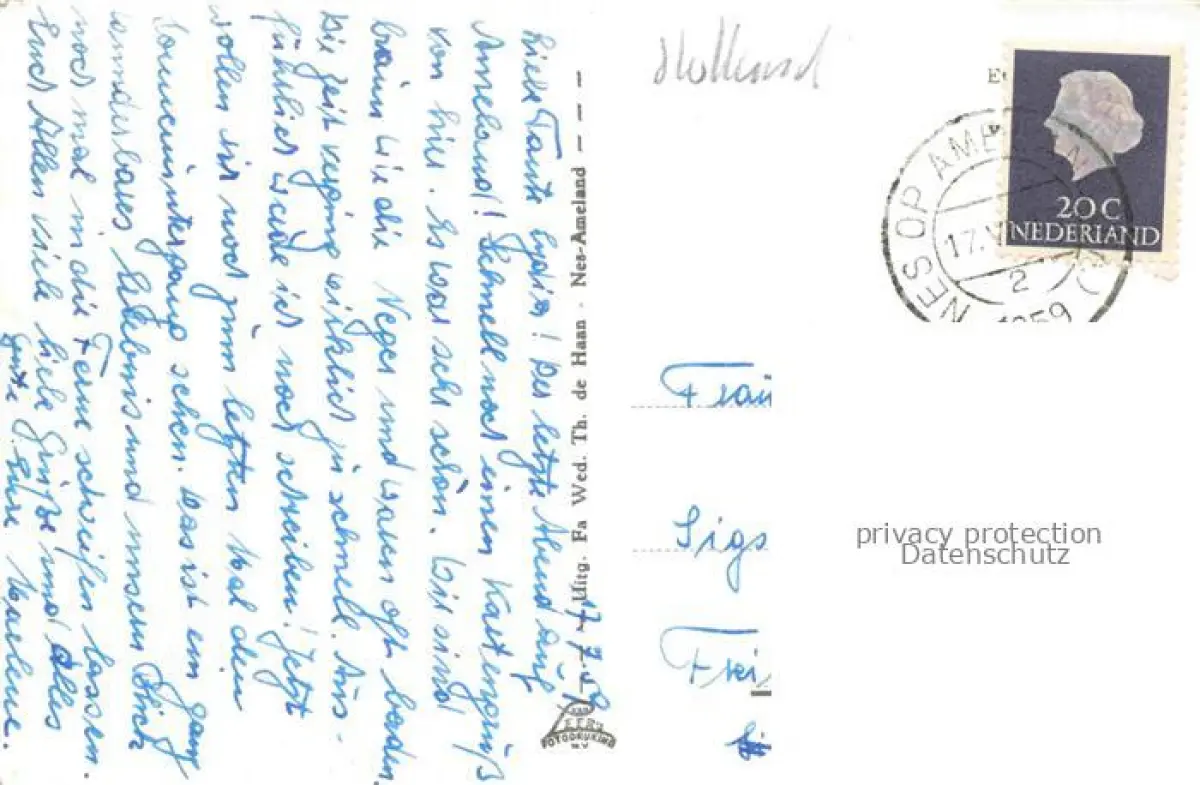 17.7.59
Liebe Tante Lydia! Der letzte Abend auf
Ameland! Schnell noch einen Kartengruß
von hier. Es war sehr schön. Wir sind
braun wie die Neger und waren oft baden.
Die Zeit verging wirklich zu schnell. Aus-
führlicher werde ich noch schreiben! Jetzt
wollen wir noch zum letzten Mal den
Sonnenuntergang sehen. Das ist ein ganz
wunderbares Erlebnis und unsern Blick
noch mal in die Ferne schweifen lassen.
Euch Allen viele liebe Grüße und alles
Gute Eure
Uitg. Fa Wed. Th. de Haan - Nes-Ameland
VAN LEER'S
FOTODRUKIND.
N.V.
Holland
20 C
NEDERLAND
NES OP AMEL
17.V
2
1959
Frau
Sigs
Frei
privacy protection
Datenschutz